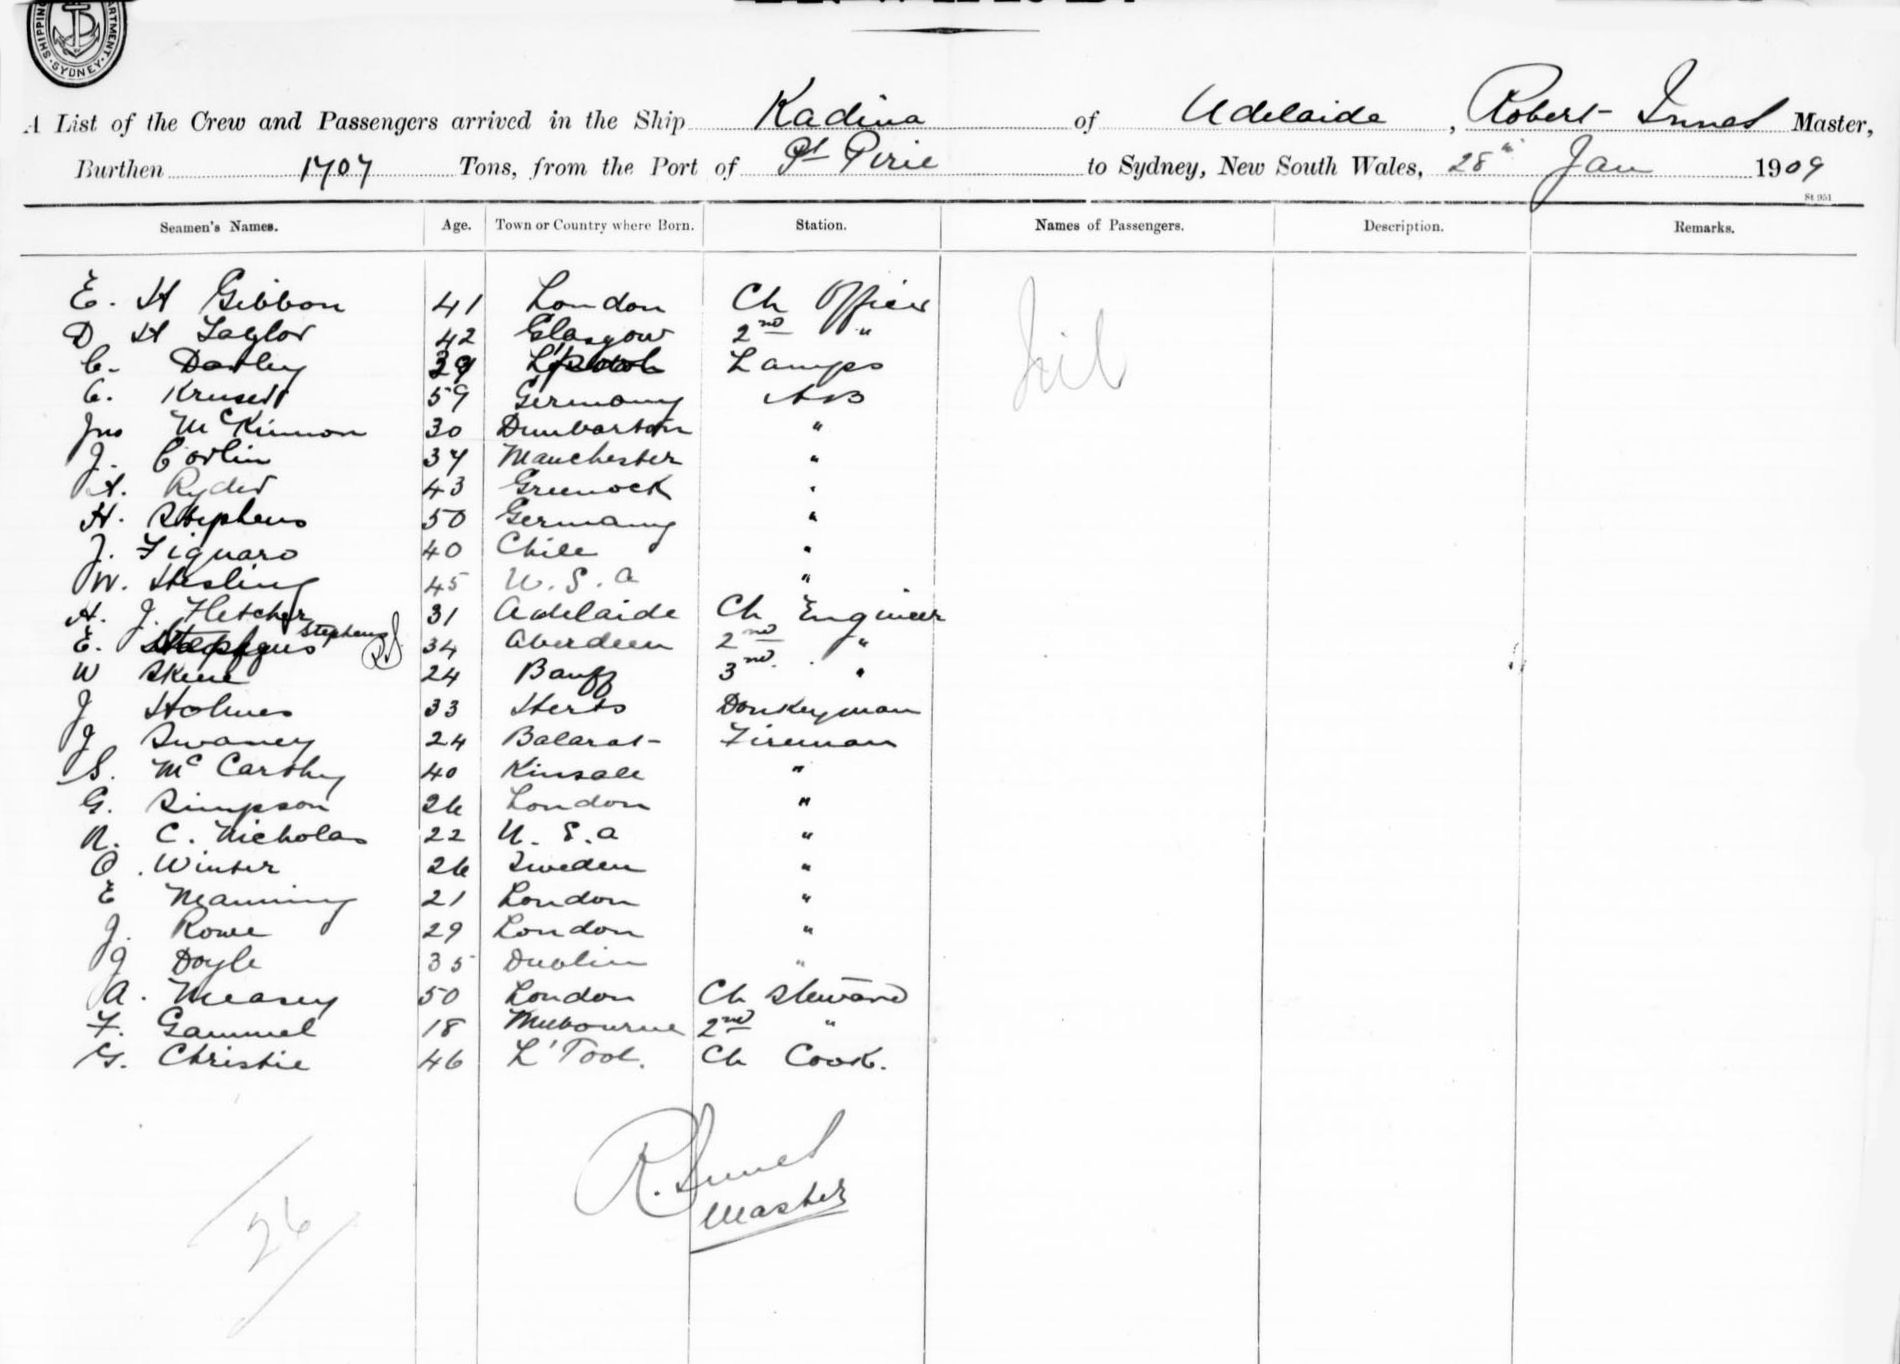 SHIPPING DEPARTMENT · SYDNEY ·
A List of the Crew and Passengers arrived in the Ship Kadina of Adelaide, Robert Innes Master,
Burthen 1707 Tons, from the Port of Pt Pirie to Sydney, New South Wales, 28th Jan 1909
St 951
Seamen's Names. Age. Town or Country where Born. Station. Names of Passengers. Description. Remarks.
E. H Gibbon 41 London Ch Officer Nil
D H Taylor 42 Glasgow 2nd "
C. Darley 39 L'pool Lamps
C. Kruse 59 Germany AB
Jno McKinnon 30 Dumbarton "
J. Corlin 37 Manchester "
A. Ryder 43 Greenock "
H. Stephens 50 Germany "
J. Figuaro 40 Chile "
W. Hesling 45 U. S. a "
A. J. Fletcher 31 Adelaide Ch Engineer
E. Stephens 34 Aberdeen 2nd "
W Skene 24 Banff 3rd "
J Holmes 33 Herts Donkeyman
J Swaney 24 Balarat Fireman
S. McCarthy 40 Kinsale "
G. Simpson 26 London "
R. C. Nicholas 22 U. S. a "
O. Winter 26 Sweden "
E Manning 21 London "
J. Rowe 29 London "
J Doyle 35 Dublin "
A. Measey 50 London Ch Steward
F. Gammel 18 Melbourne 2nd "
G. Christie 46 L'Pool. Ch Cook.
R. Innes
Master
26